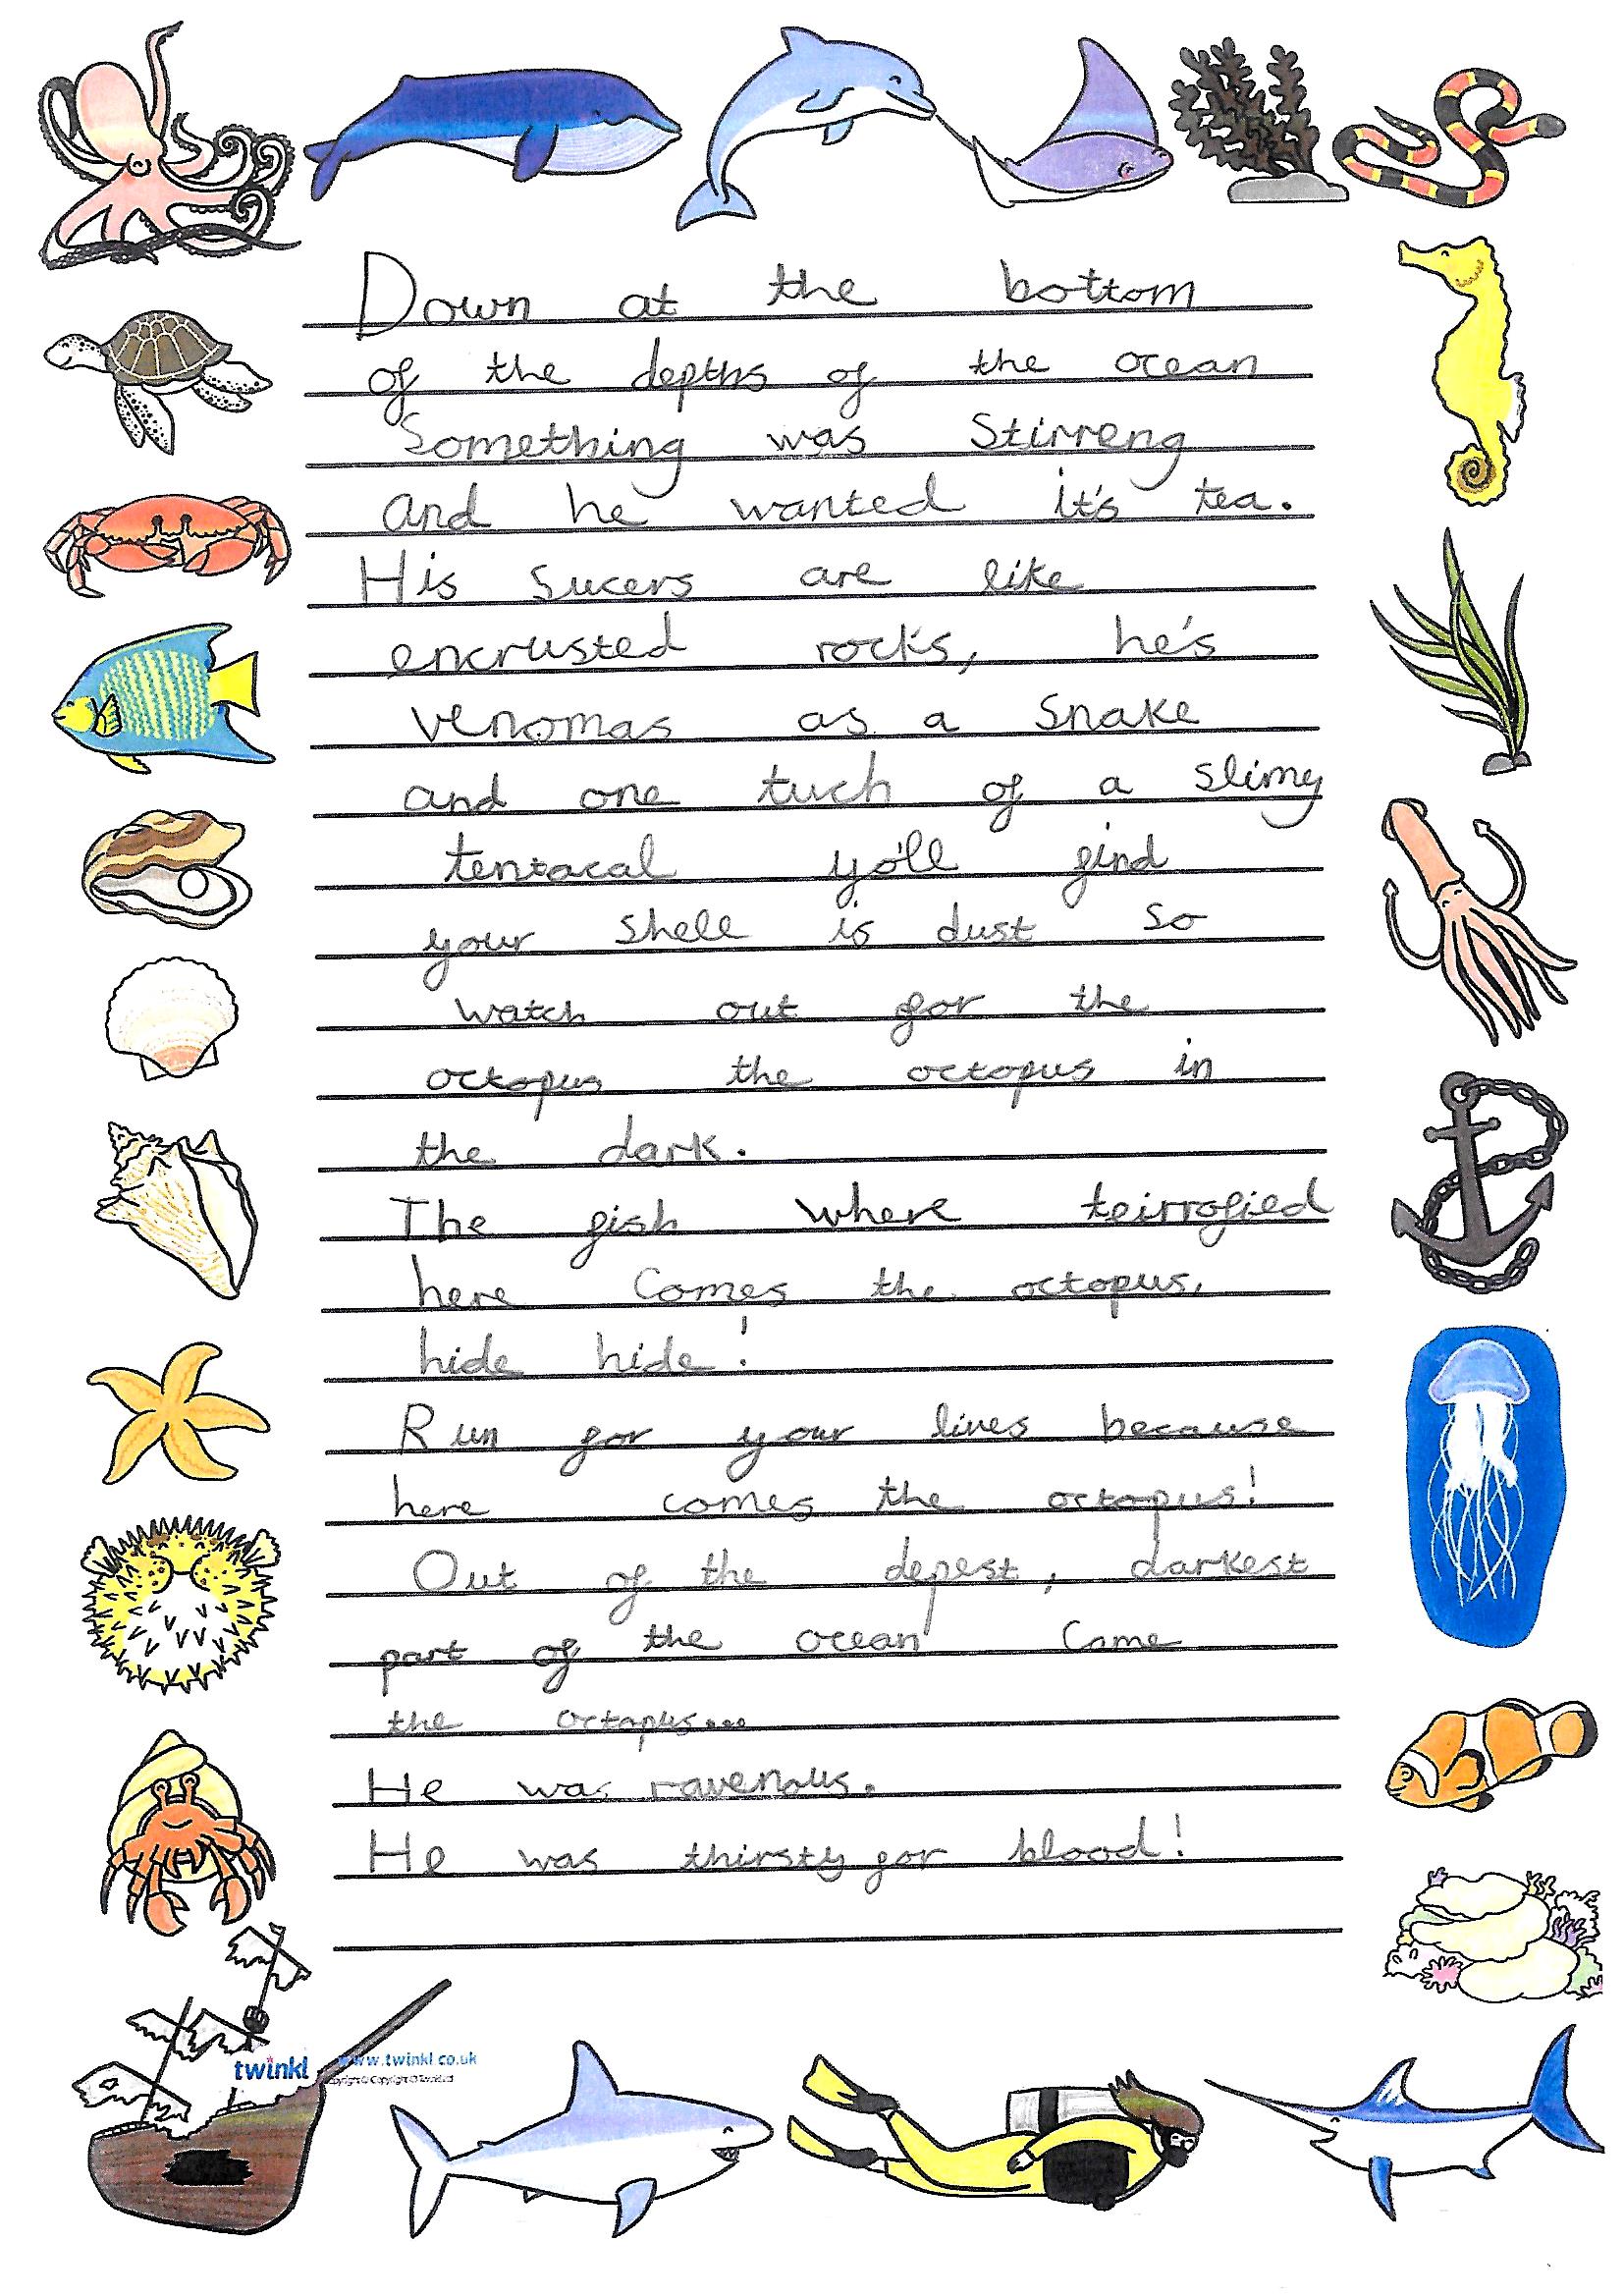 Down at the bottom
of the depths of the ocean
Something was Stirreng
and he wanted it's tea.
His sucers are like
encrusted rock's, he's
venomas as a snake
and one tuch of a slimy
tentacal yo'll find
your shell is dust so
watch out for the
octopus the octopus in
the dark.
The fish where teirrofied
here comes the octopus,
hide hide!
Run for your lives because
here comes the octopus!
Out of the depest, darkest
part of the ocean came
the octopus...
He was ravenous.
He was thirsty for blood!
twinkl www.twinkl.co.uk